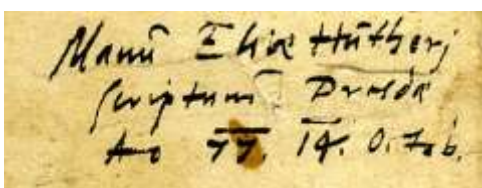 Manū Eliæ Hūtherj
scriptum Dresdæ
Ao 77. 14. Octob.